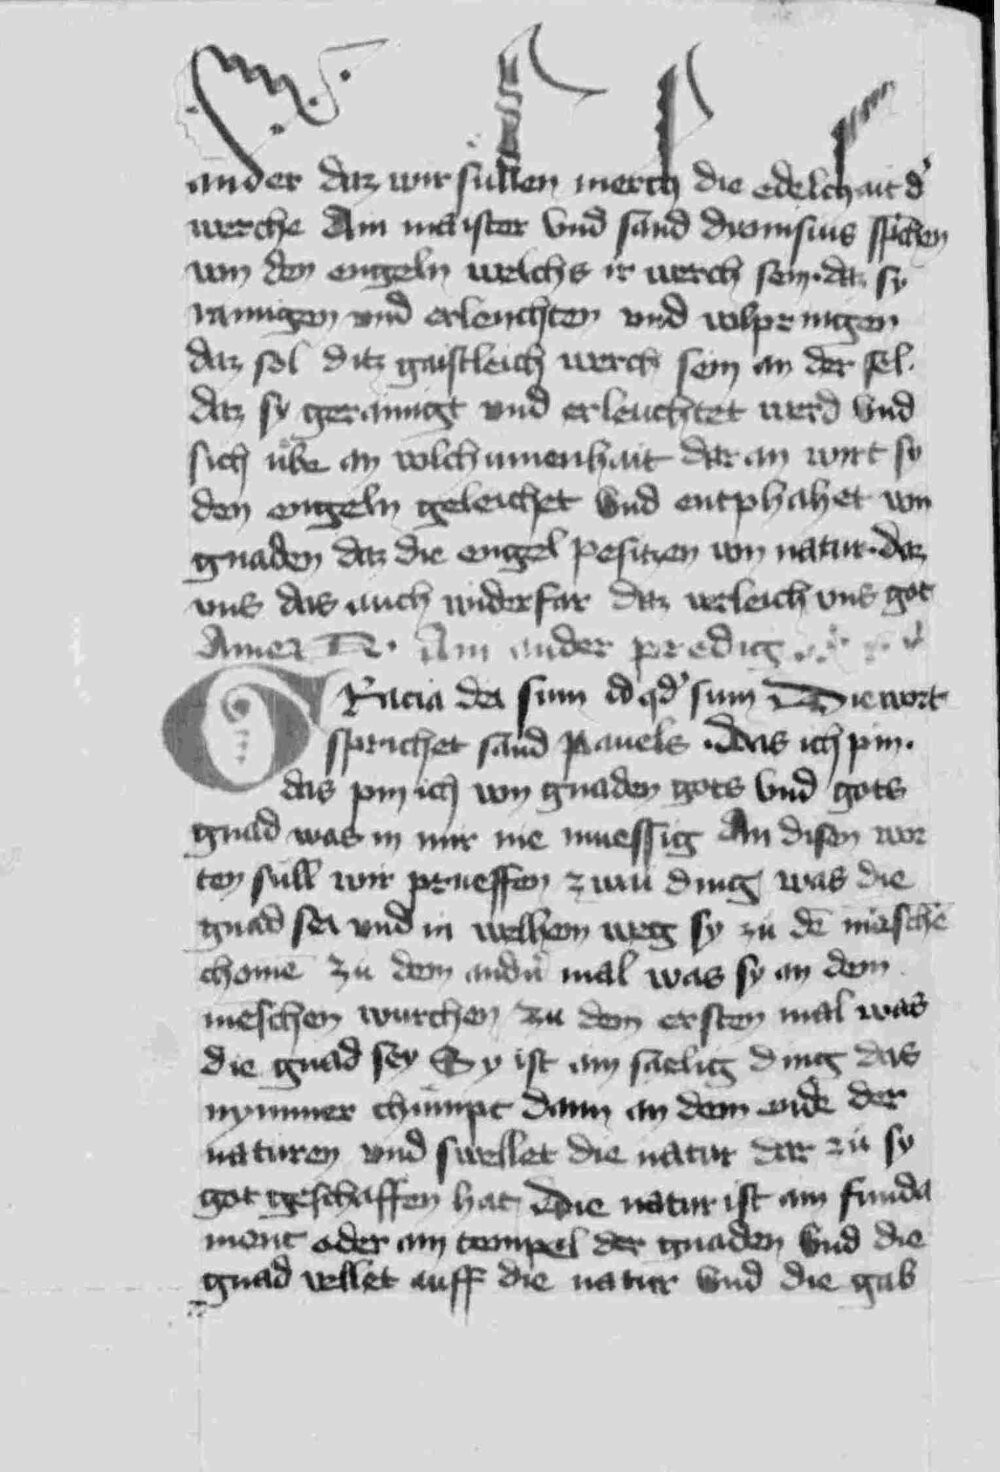 ander daz wir sullen merch die edelchait d'
werche Ain maister vnd sand dionisius sp'chen
von den engeln welchs ir werch sein · daz sy
rainigen vnd erleuchten vnd volpringen
daz sol ditz gaistleich werch sein an der sel ·
daz sy gerainigt vnd erleuchtet werd vnd
sich übe an volchumenhait dar an wirt sy
den engeln geleichet vnd entphahet von
gnaden daz die engel pesitzen von natur · daz
vns das auch widerfar daz verleich vns got
Amen Ain ander predig
GRacia dei sum id qd' sum Die wort
sprichet sand pauels · Das ich pin ·
das pin ich von gnaden gots vnd gots
gnad was in mir nie muessig An disen wor
ten süll wir prueffen zwai ding was die
gnad sei vnd in welhem weg sy zu dē mēschē
chomē zu dem andn̄ mal was sy an dem
mēschen wurchen zu dem ersten mal was
die gnad sey Sy ist ain saelig ding das
nymmer chümpt dann an dem ende der
naturen vnd swellet die natur dar zü sy
got geschaffen hat Die natur ist ain funda
ment oder ain tempel der gnaden vnd die
gnad vellet auff die natur vnd die gab